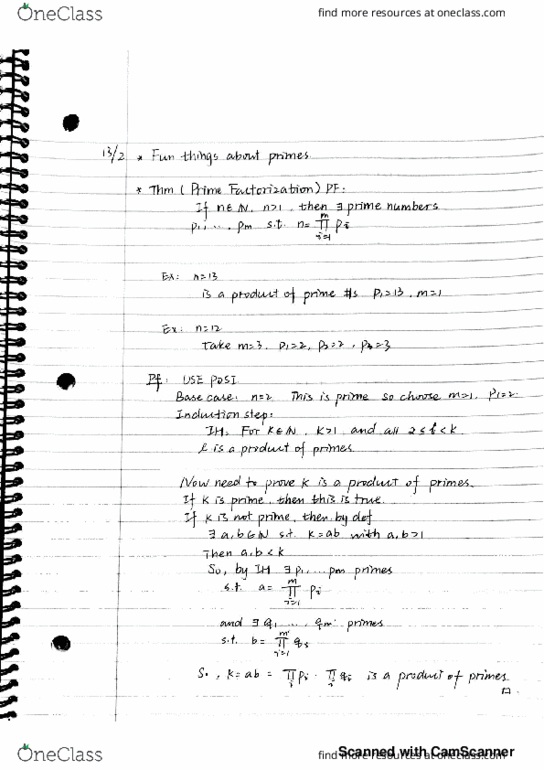 OneClass
find more resources at oneclass.com
13/2 * Fun things about primes
* Thm (Prime Factorization) PF:
If n∈ℕ, n>1, then ∃ prime numbers
p₁, ..., pm s.t. n = ∏ᵢ₌₁ᵐ pᵢ
Ex: n=13
is a product of prime #s p₁=13, m=1
Ex: n=12
Take m=3, p₁=2, p₂=2, p₃=3
Pf: USE POSI
Base case: n=2. This is prime so choose m=1, p₁=2.
Induction step:
IH: For k∈ℕ, k>1 and all 2≤ℓ<k
ℓ is a product of primes
Now need to prove k is a product of primes.
If k is prime, then this is true.
If k is not prime, then by def
∃ a,b∈ℕ s.t. k=ab with a,b>1
Then a,b<k
So, by IH ∃ p₁,...,pm primes
s.t. a = ∏ᵢ₌₁ᵐ pᵢ
and ∃ q₁, ..., qm' primes
s.t. b = ∏ᵢ₌₁ᵐ' qᵢ
So, k=ab = ∏ᵢ pᵢ · ∏ᵢ qᵢ is a product of primes.
□.
Scanned with CamScanner
OneClass
find more resources at oneclass.com